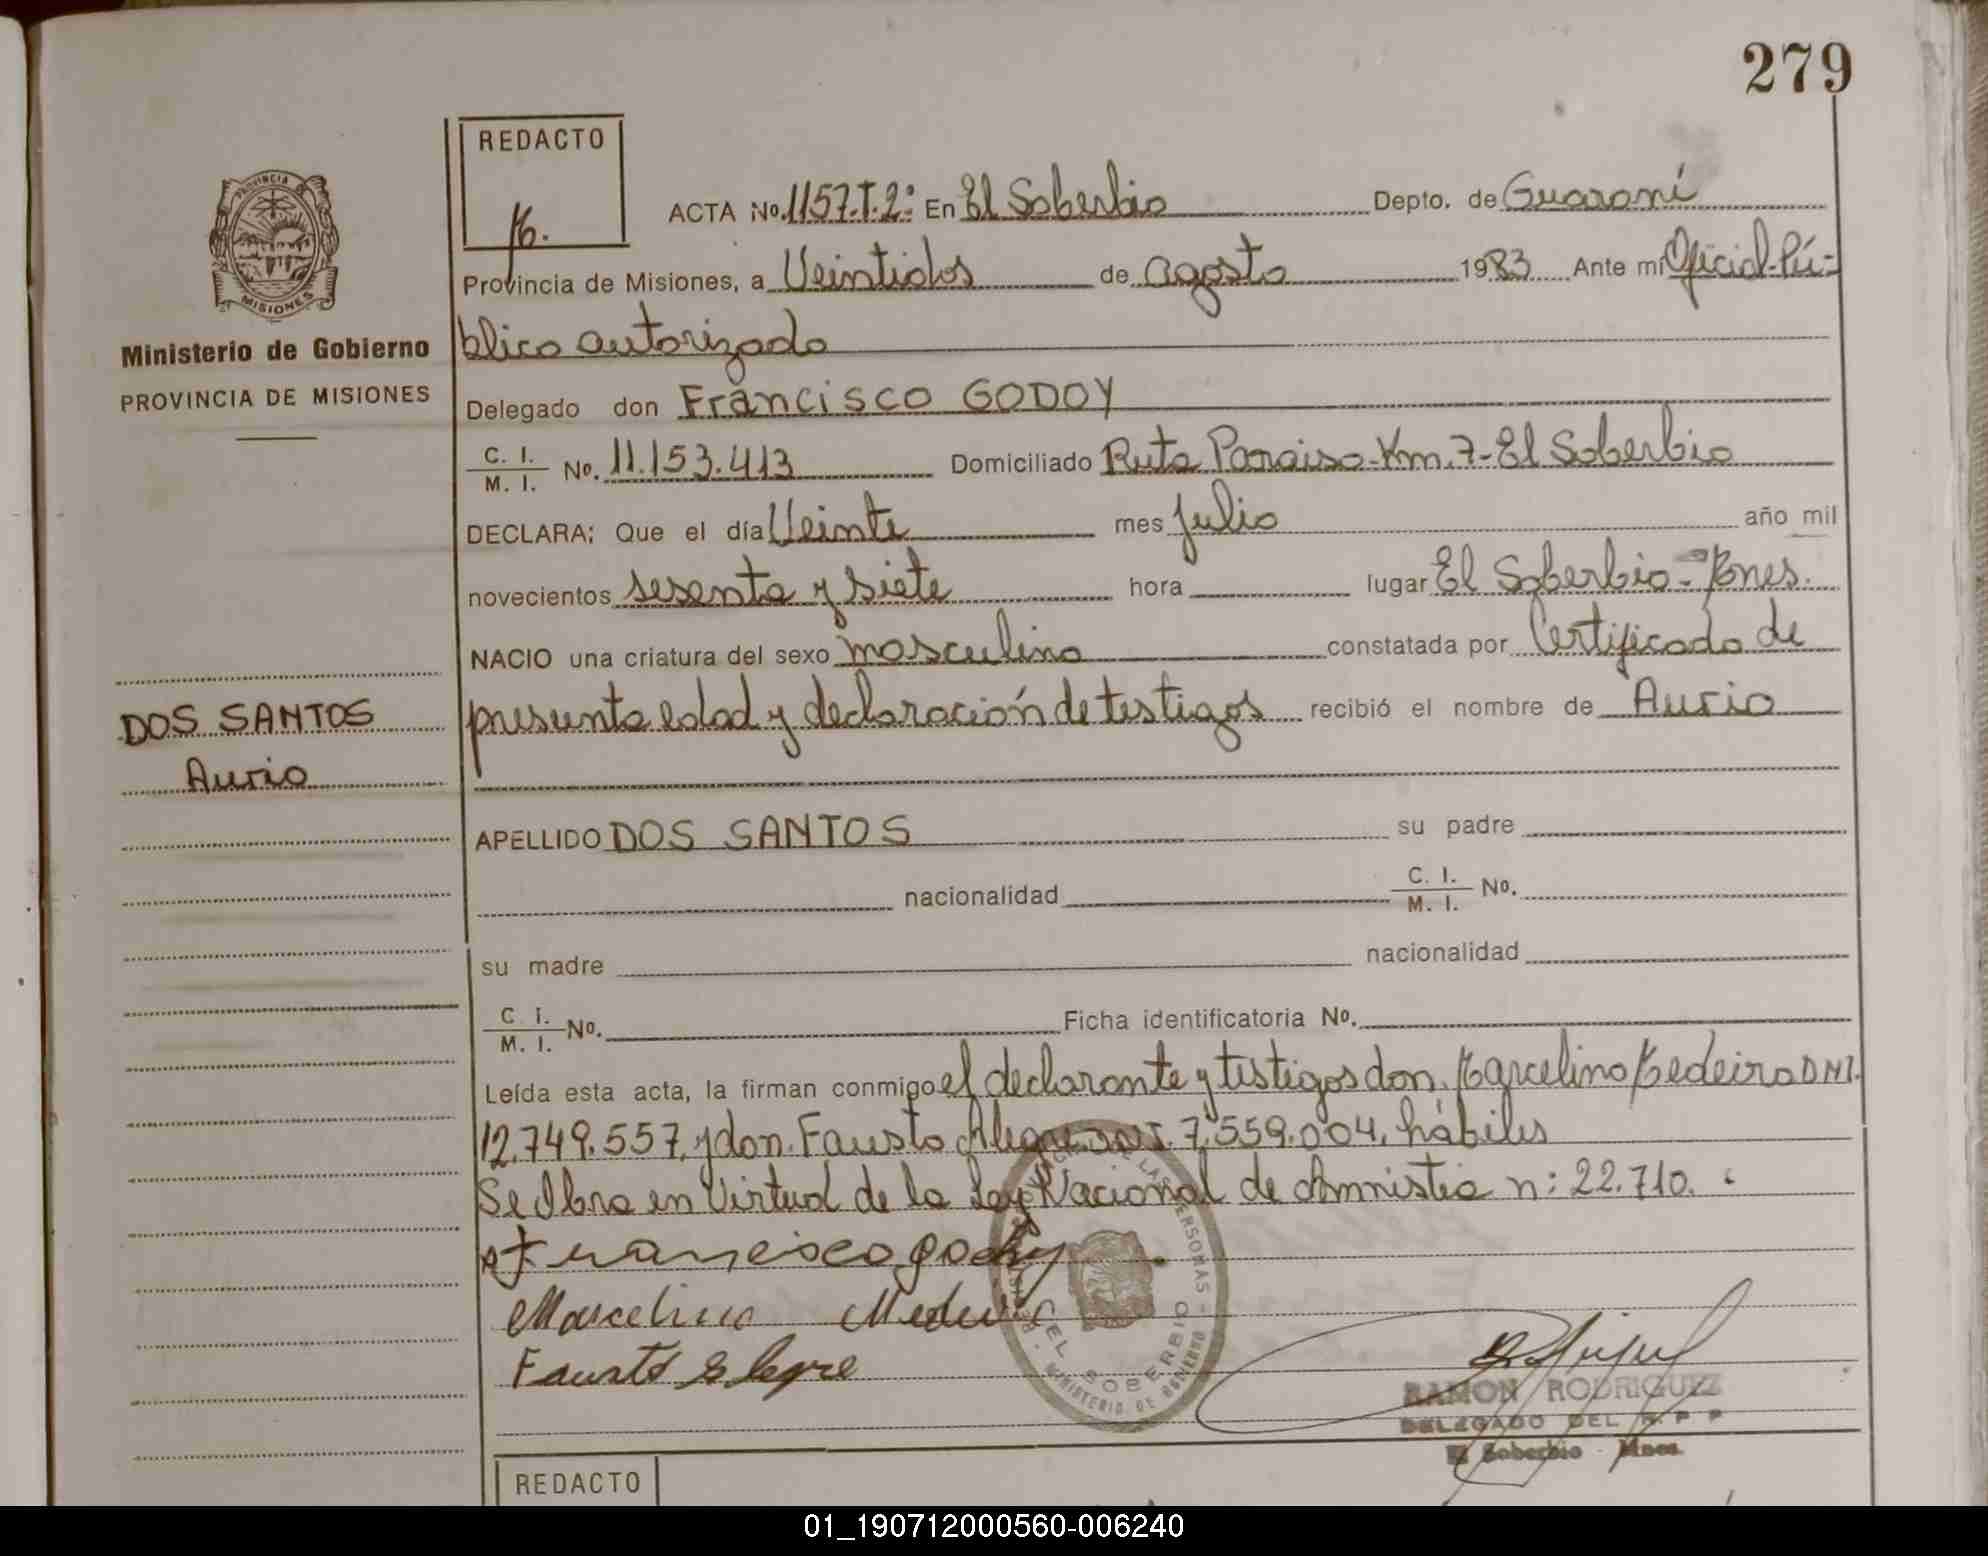 279
REDACTO
PROVINCIA
MISIONES
Ministerio de Gobierno
PROVINCIA DE MISIONES
ACTA No. 1157.T.2º En El Soberbio Depto. de Guaraní
Provincia de Misiones, a Veintidos de agosto 1983 Ante mi Oficial Pú-
blico autorizado
Delegado don Francisco GODOY
C. I.
M. I. No. 11.153.413 Domiciliado Ruta Paraiso-Km.7-El Soberbio
DECLARA: Que el día Veinte mes Julio año mil
novecientos sesenta y siete hora lugar El Soberbio-Mnes.
NACIO una criatura del sexo masculino constatada por Certificado de
presunta edad y declaración de testigos recibió el nombre de Aurio
DOS SANTOS
Aurio
APELLIDO DOS SANTOS su padre
nacionalidad C. I.
M. I. No.
su madre nacionalidad
C. I.
M. I. No. Ficha identificatoria No.
Leída esta acta, la firman conmigo el declarante y testigos don. Marcelino Medeiro DNI.
12.749.557, y don. Fausto Alegre 7.559.004, hábiles
Se Labra en Virtud de la Ley Nacional de Amnistia n: 22.710.
Francisco godoy
Marcelino
Fausto Alegre
EL SOBERBIO
MINISTERIO DE GOBIERNO
RAMON RODRIGUEZ
DELEGADO DEL R. P. P
El Soberbio - Mnes.
REDACTO
01_190712000560-006240